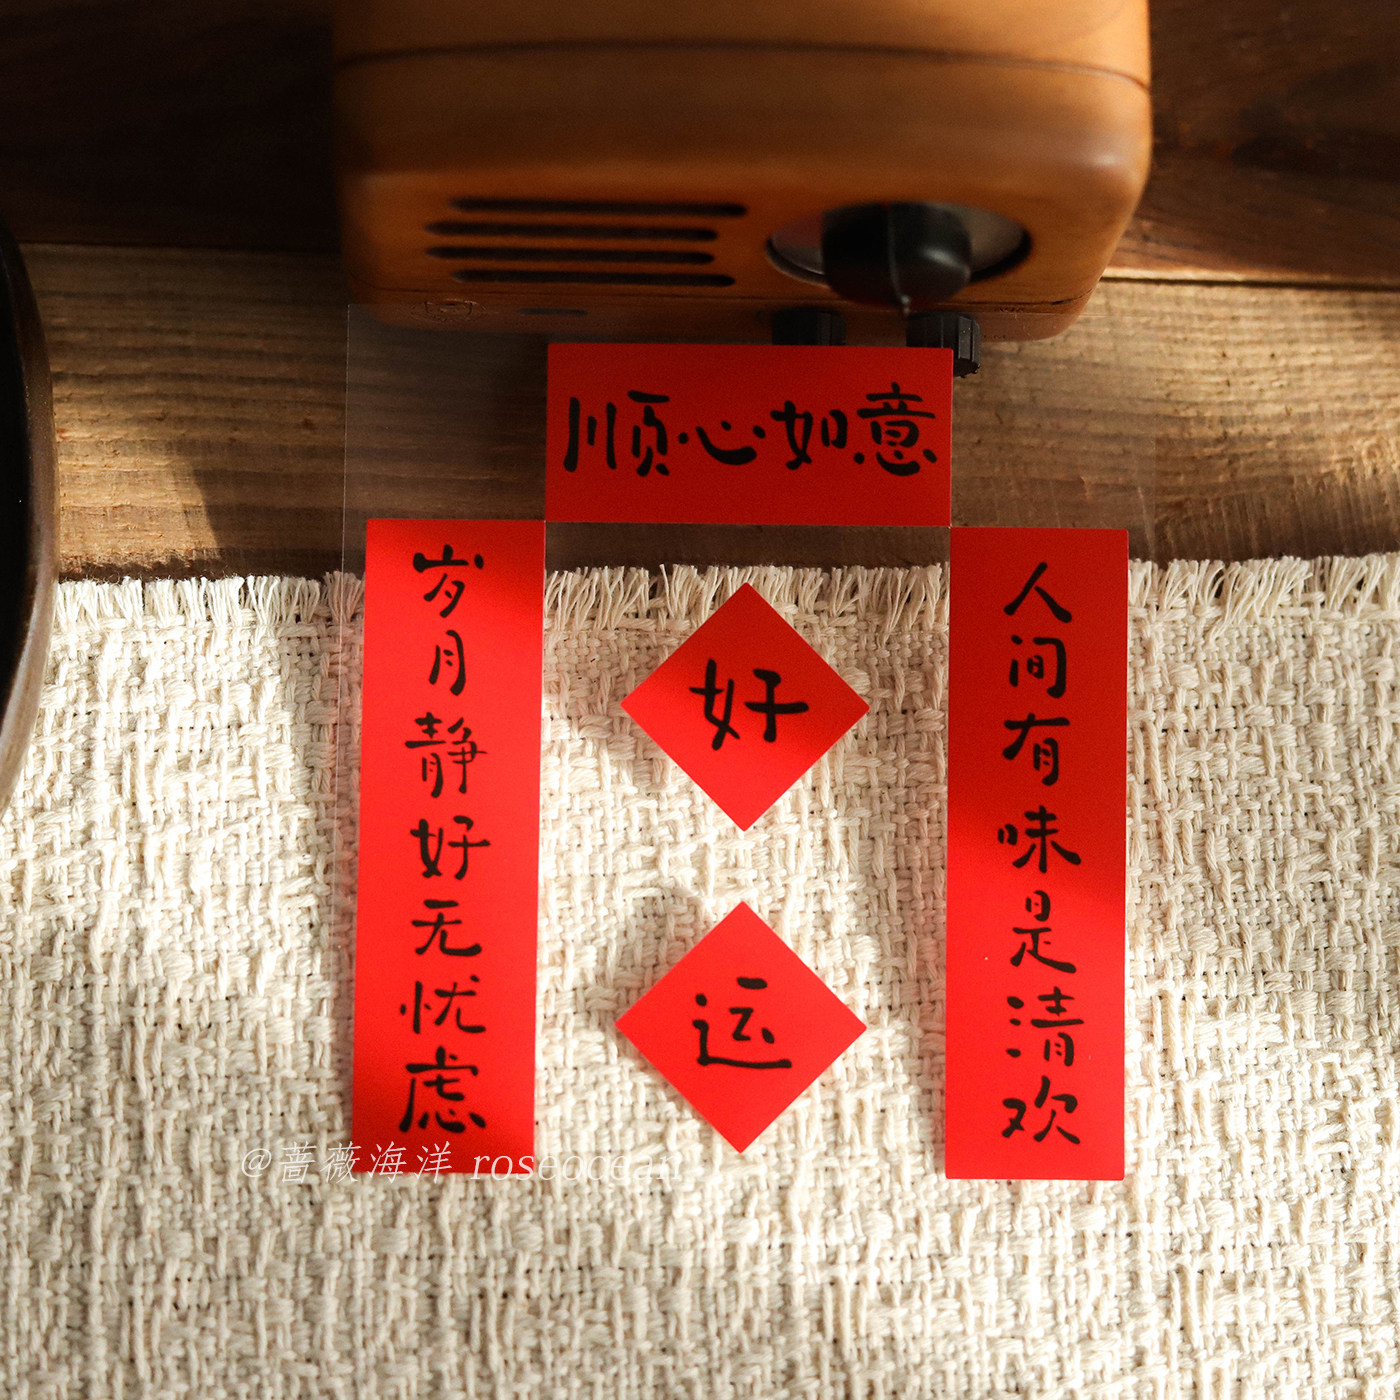 顺心如意
岁月静好无忧虑
好
运
人间有味是清欢
@蔷薇海洋 roseocean